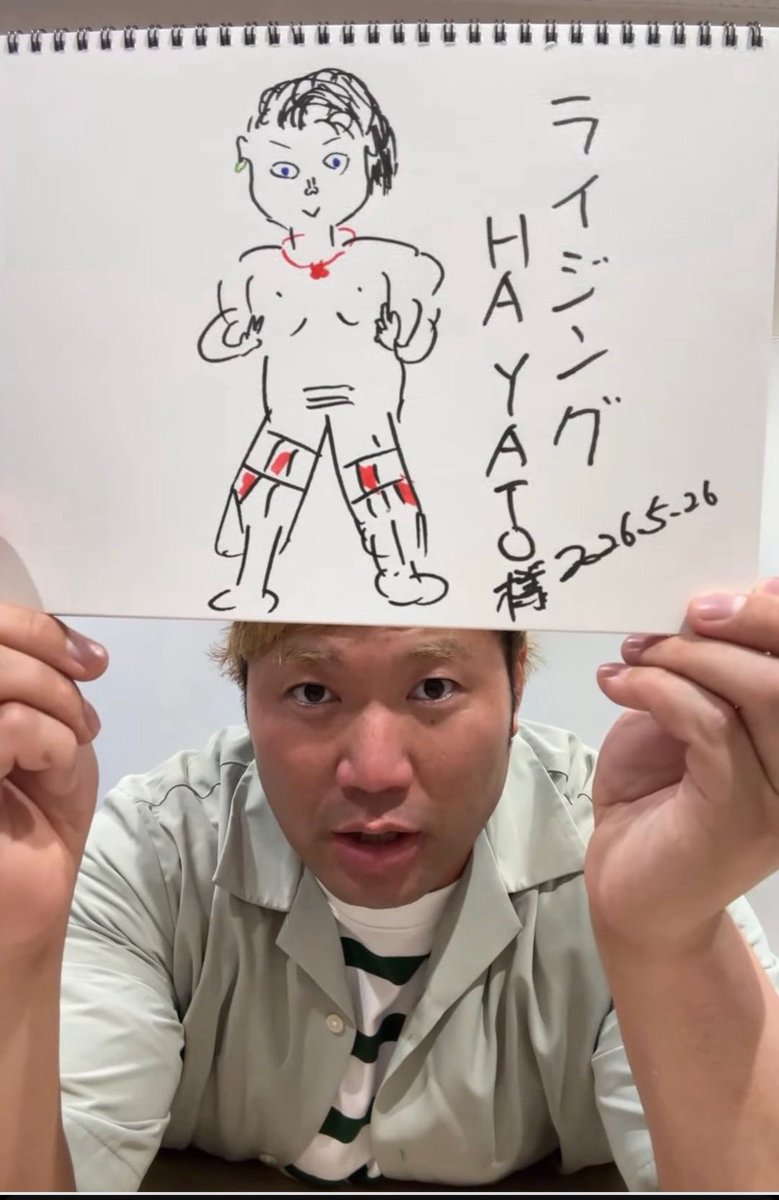 ライジング
HAYATO様
2026.5-26